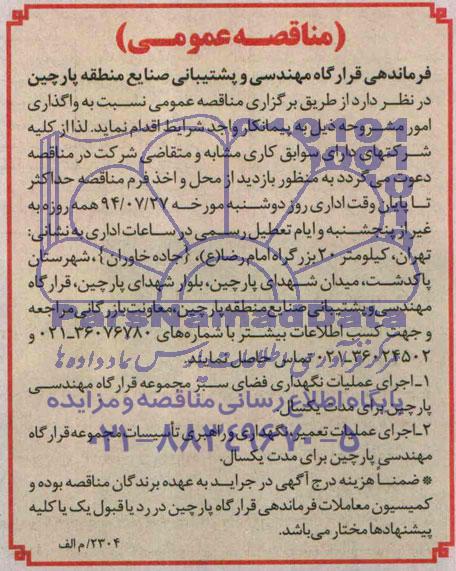 (مناقصه عمومی)
فرماندهی قرارگاه مهندسی و پشتیبانی صنایع منطقه پارچین
در نظر دارد از طریق برگزاری مناقصه عمومی نسبت به واگذاری
امور مشروحه ذیل به پیمانکار واجد شرایط اقدام نماید. لذا از کلیه
شرکتهای دارای سوابق کاری مشابه و متقاضی شرکت در مناقصه
دعوت می‌گردد به منظور بازدید از محل و اخذ فرم مناقصه حداکثر
تا پایان وقت اداری روز دوشنبه مورخه ۹۴/۰۷/۲۷ همه روزه به
غیر از پنجشنبه و ایام تعطیل رسمی در ساعات اداری به نشانی:
تهران، کیلومتر ۲۰ بزرگراه امام رضا(ع)، {جاده خاوران}، شهرستان
پاکدشت، میدان شهدای پارچین، بلوار شهدای پارچین، قرارگاه
مهندسی و پشتیبانی صنایع منطقه پارچین، معاونت بازرگانی مراجعه
و جهت کسب اطلاعات بیشتر با شماره‌های ۳۶۰۷۶۷۸۰-۰۲۱ و
۳۶۰۲۴۵۰۲-۰۲۱ تماس حاصل نمایند.
۱-اجرای عملیات نگهداری فضای سبز مجموعه قرارگاه مهندسی
پارچین برای مدت یکسال.
۲-اجرای عملیات تعمیر، نگهداری و راهبری تأسیسات مجموعه قرارگاه
مهندسی پارچین برای مدت یکسال.
* ضمناً هزینه درج آگهی در جراید به عهده برندگان مناقصه بوده و
کمیسیون معاملات فرماندهی قرارگاه پارچین در رد یا قبول یک یا کلیه
پیشنهادها مختار می‌باشد.
۲۳۰۴/م الف
ParsNamadData
مرکز فرآوری اطلاعات پارس نماد داده ها
پایگاه اطلاع رسانی مناقصه و مزایده
۰۲۱-۸۸۳۴۹۶۷۰-۵